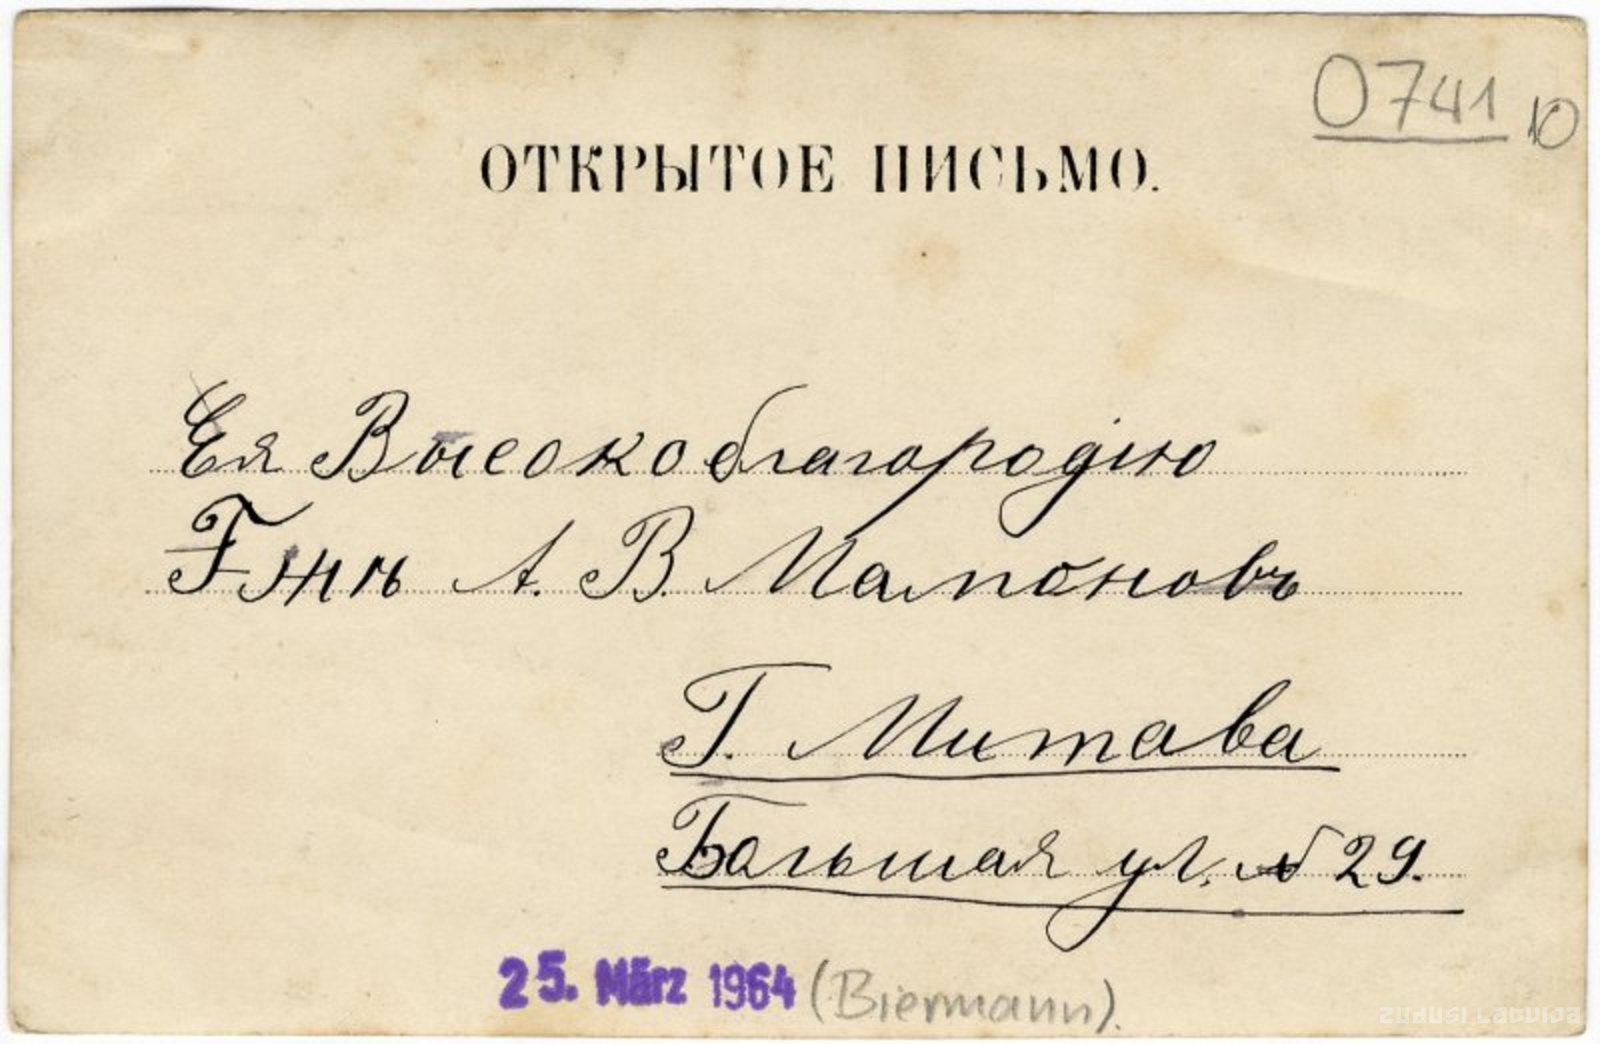 0741 10
ОТКРЫТОЕ ПИСЬМО.
Ея Высокоблагородію
Гжнѣ А. В. Мамоновъ
Г. Митава
Большая ул. № 29.
25. März 1964 (Biermann).
ZUDUSI LATVIJA